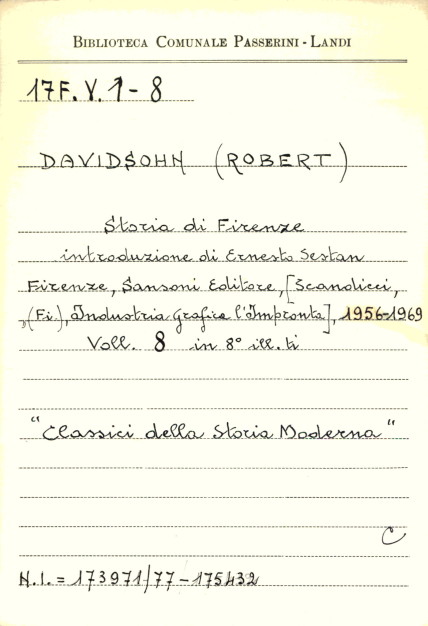 BIBLIOTECA COMUNALE PASSERINI-LANDI
17F. V. 1-8
DAVIDSOHN (ROBERT)
Storia di Firenze
introduzione di Ernesto Sestan
Firenze, Sansoni Editore, [Scandicci,
(Fi.), Industria Grafica l'Impronta], 1956-1969
Voll. 8 in 8° ill.ti
"Classici della Storia Moderna"
C
N.I. = 173971/77-175432